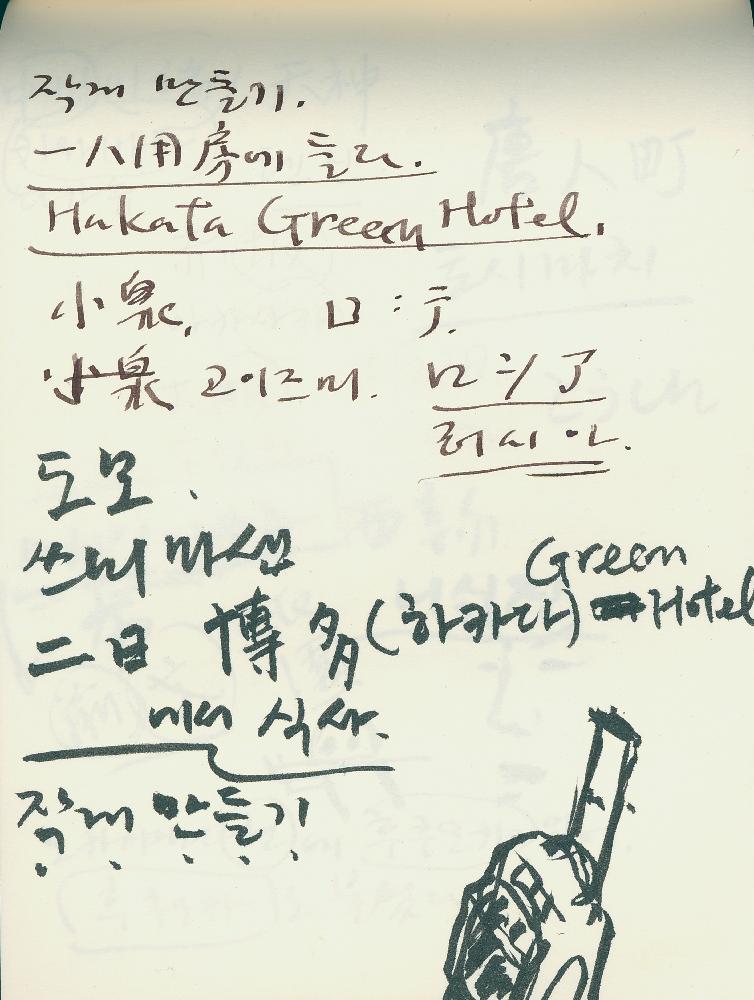 작게 만들기.
一人用房에 들다.
Hakata Green Hotel.
小泉,
小泉 고이즈미.
러시아.
도모.
쓰미마센
二日 博多(하카다) Green Hotel
에서 식사.
작게 만들기